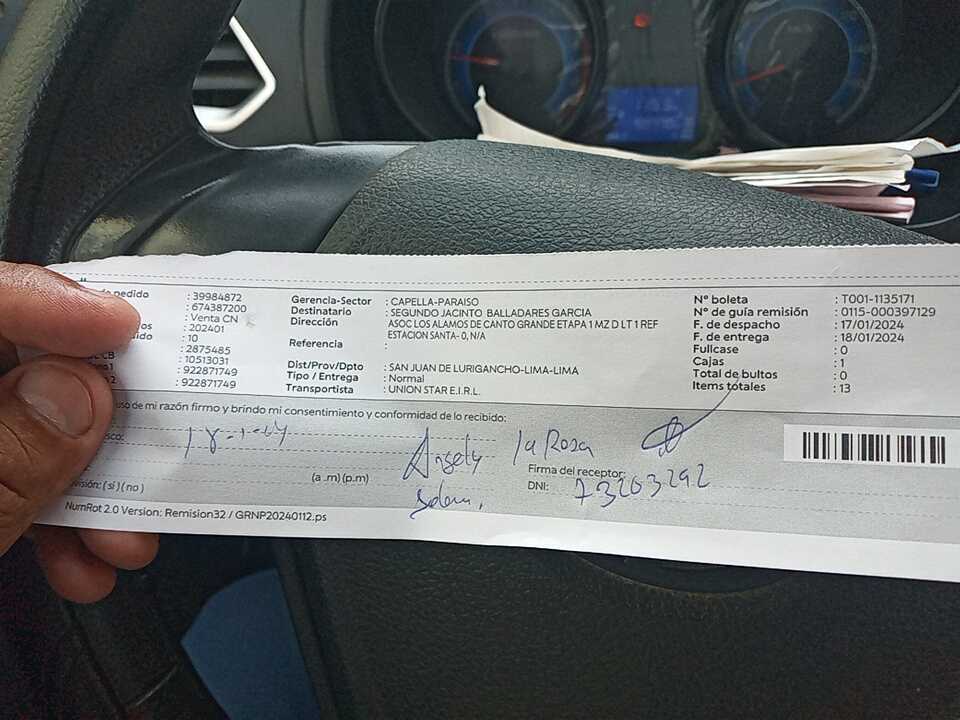 pedido : 39984872
: 674387200
: Venta CN
: 202401
: 10
CB : 2875485
: 10513031
: 922871749
2 : 922871749
Gerencia-Sector : CAPELLA-PARAISO
Destinatario : SEGUNDO JACINTO BALLADARES GARCIA
Dirección ASOC LOS ALAMOS DE CANTO GRANDE ETAPA 1 MZ D LT 1 REF
ESTACION SANTA- 0, N/A
Referencia :
Dist/Prov/Dpto : SAN JUAN DE LURIGANCHO-LIMA-LIMA
Tipo / Entrega : Normal
Transportista : UNION STAR E.I.R.L.
N° boleta : T001-1135171
N° de guía remisión : 0115-000397129
F. de despacho : 17/01/2024
F. de entrega : 18/01/2024
Fullcase : 0
Cajas : 1
Total de bultos : 0
Items totales : 13
uso de mi razón firmo y brindo mi consentimiento y conformidad de lo recibido:
(a .m) (p.m)
Angely la Rosa
Firma del receptor:
DNI: 73203292
( si ) ( no )
NumRot 2.0 Version: Remision32 / GRNP20240112.ps